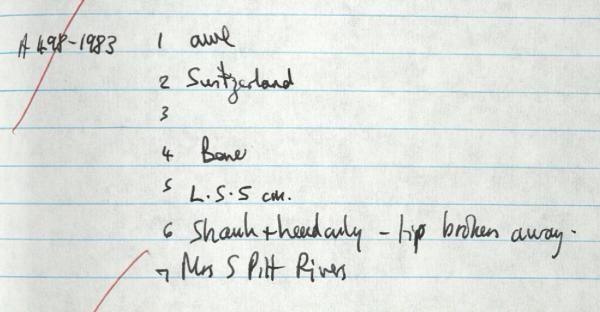 A 498-1983 1 awl
2 Switzerland
3
4 Bone
5 L. 5.5 cm.
6 Shank + head only - tip broken away.
7 Mrs S Pitt Rivers